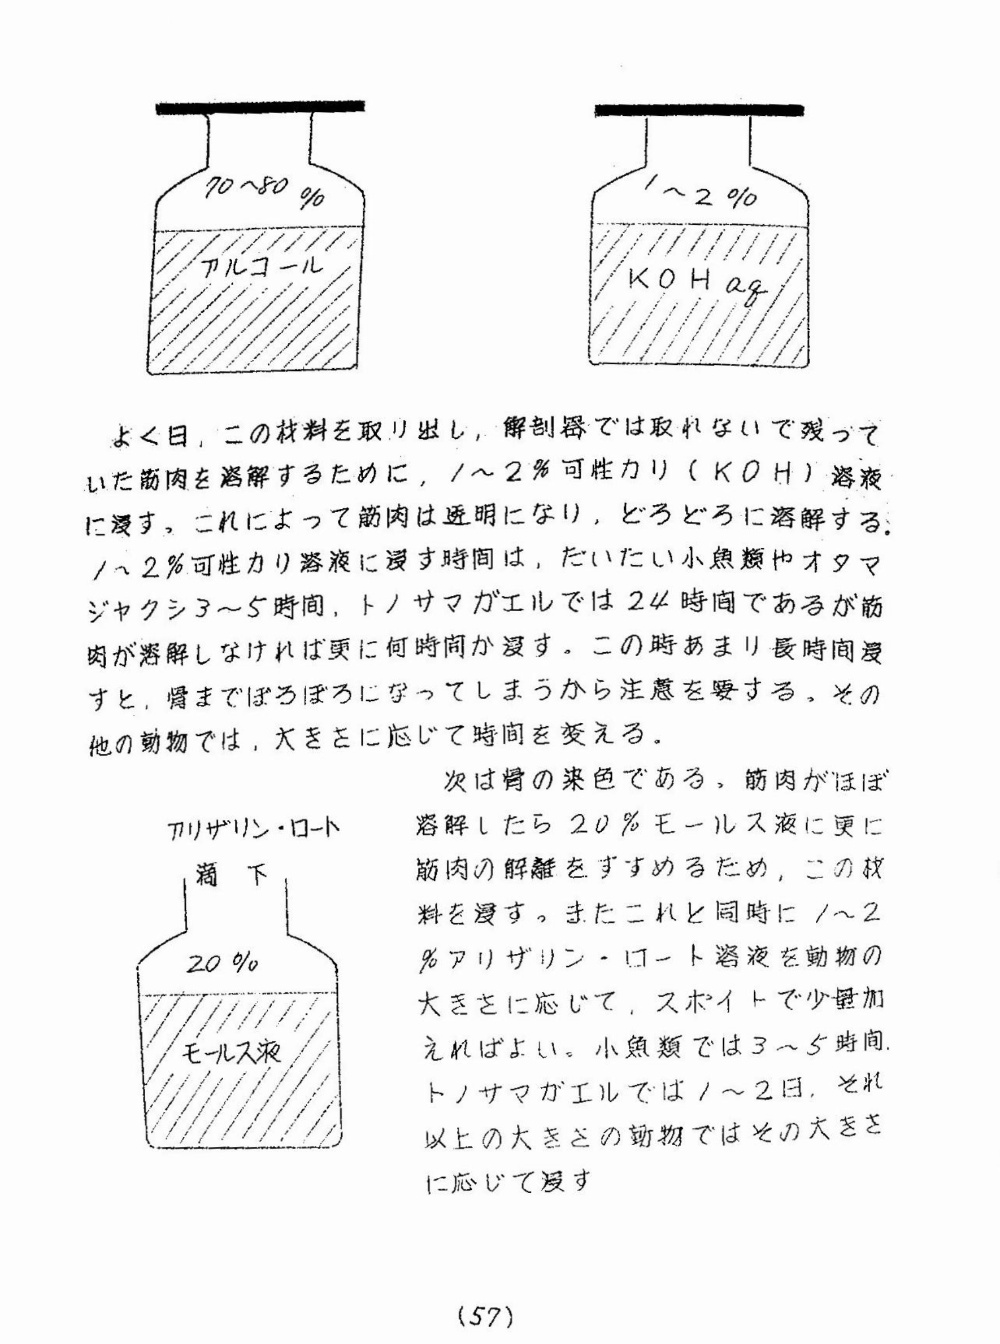 70～80%
アルコール
1～2%
KOH aq
よく日，この材料を取り出し，解剖器では取れないで残って
いた筋肉を溶解するために，1～2％可性カリ（KOH）溶液
に浸す。これによって筋肉は透明になり，どろどろに溶解する．
1～2％可性カリ溶液に浸す時間は，だいたい小魚類やオタマ
ジャクシ3～5時間，トノサマガエルでは24時間であるが筋
肉が溶解しなければ更に何時間か浸す。この時あまり長時間浸
すと，骨までぼろぼろになってしまうから注意を要する。その
他の動物では，大きさに応じて時間を変える。
次は骨の染色である。筋肉がほぼ
溶解したら20％モールス液に更に
筋肉の解離をすすめるため，この材
料を浸す。またこれと同時に1～2
％アリザリン・ロート溶液を動物の
大きさに応じて，スポイトで少量加
えればよい。小魚類では3～5時間．
トノサマガエルでは1～2日，それ
以上の大きさの動物ではその大きさ
に応じて浸す
アリザリン・ロート
滴下
20%
モールス液
(57)